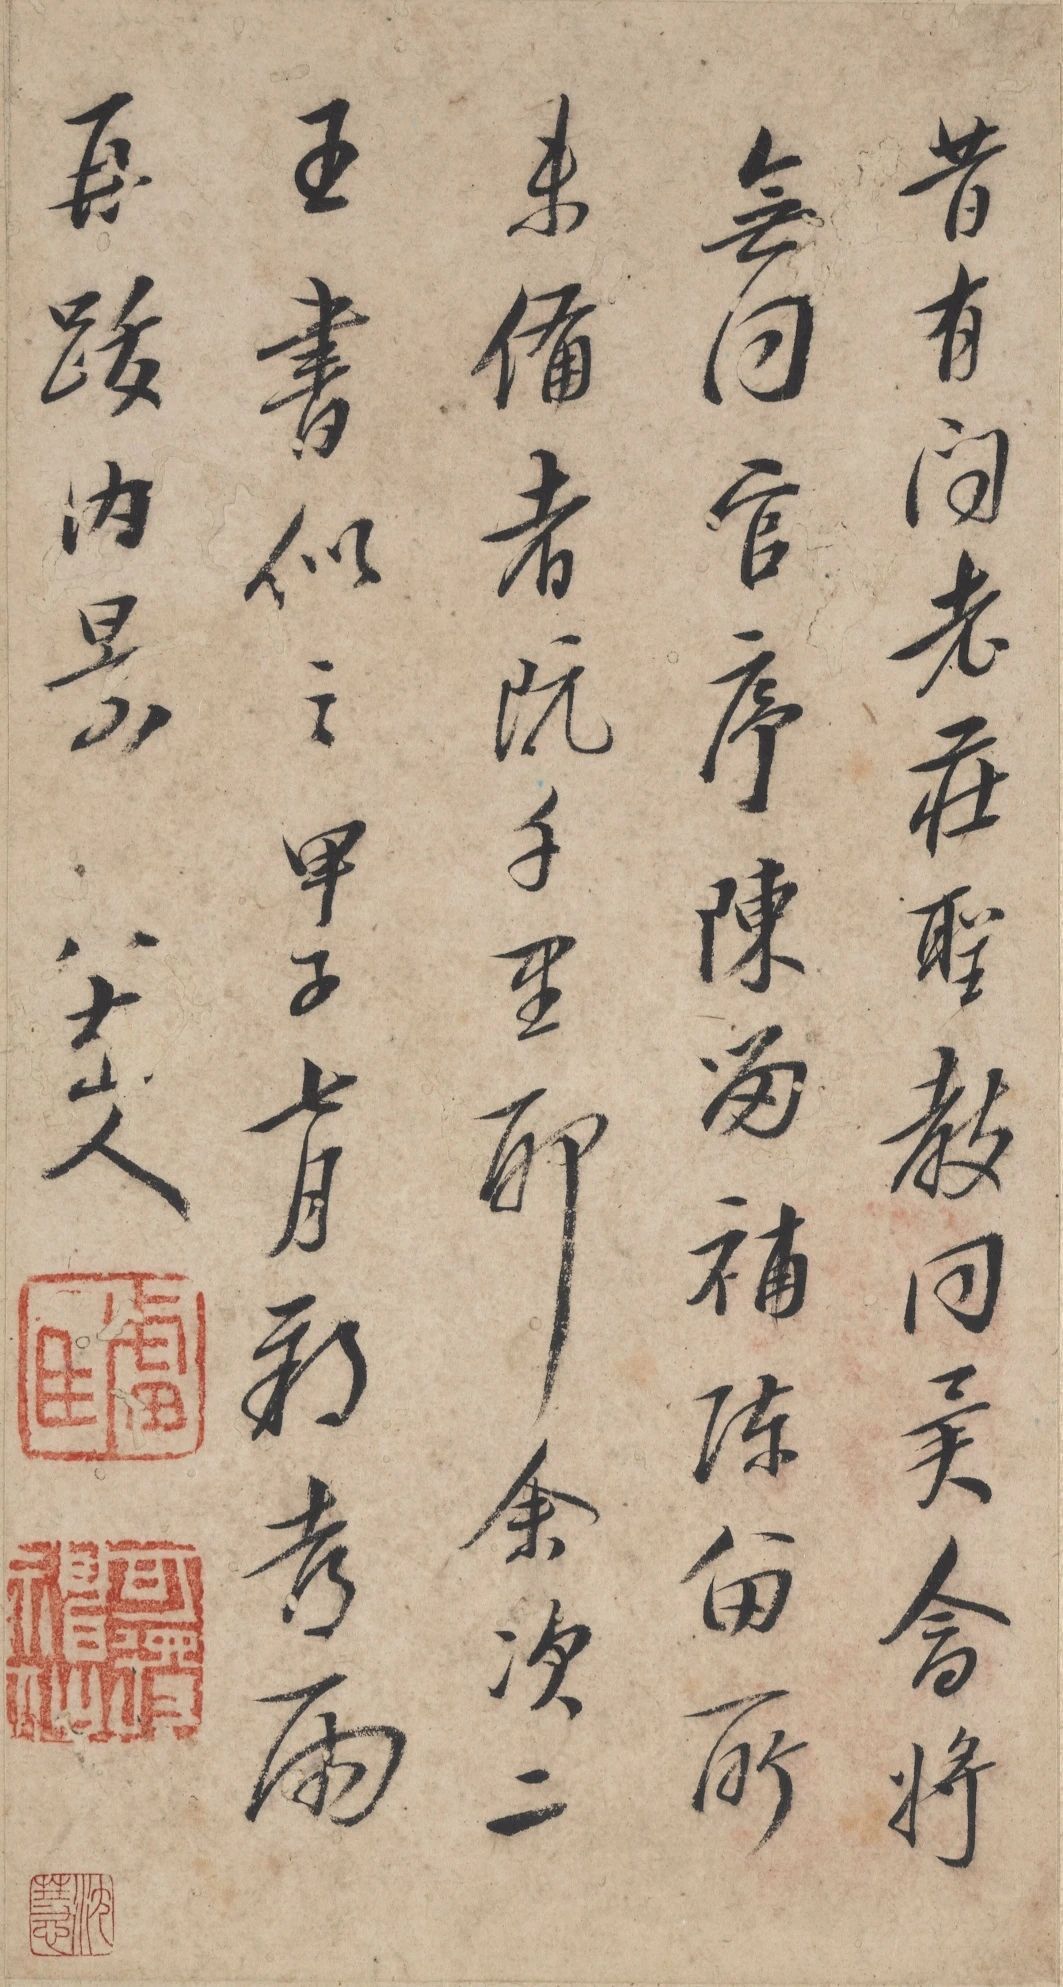 昔有问老莊聖教同異會將
無同官序陳留補陈留所
未備者既千里耶余次二
王書似之甲子七月新考兩
再跋内景 八大山人